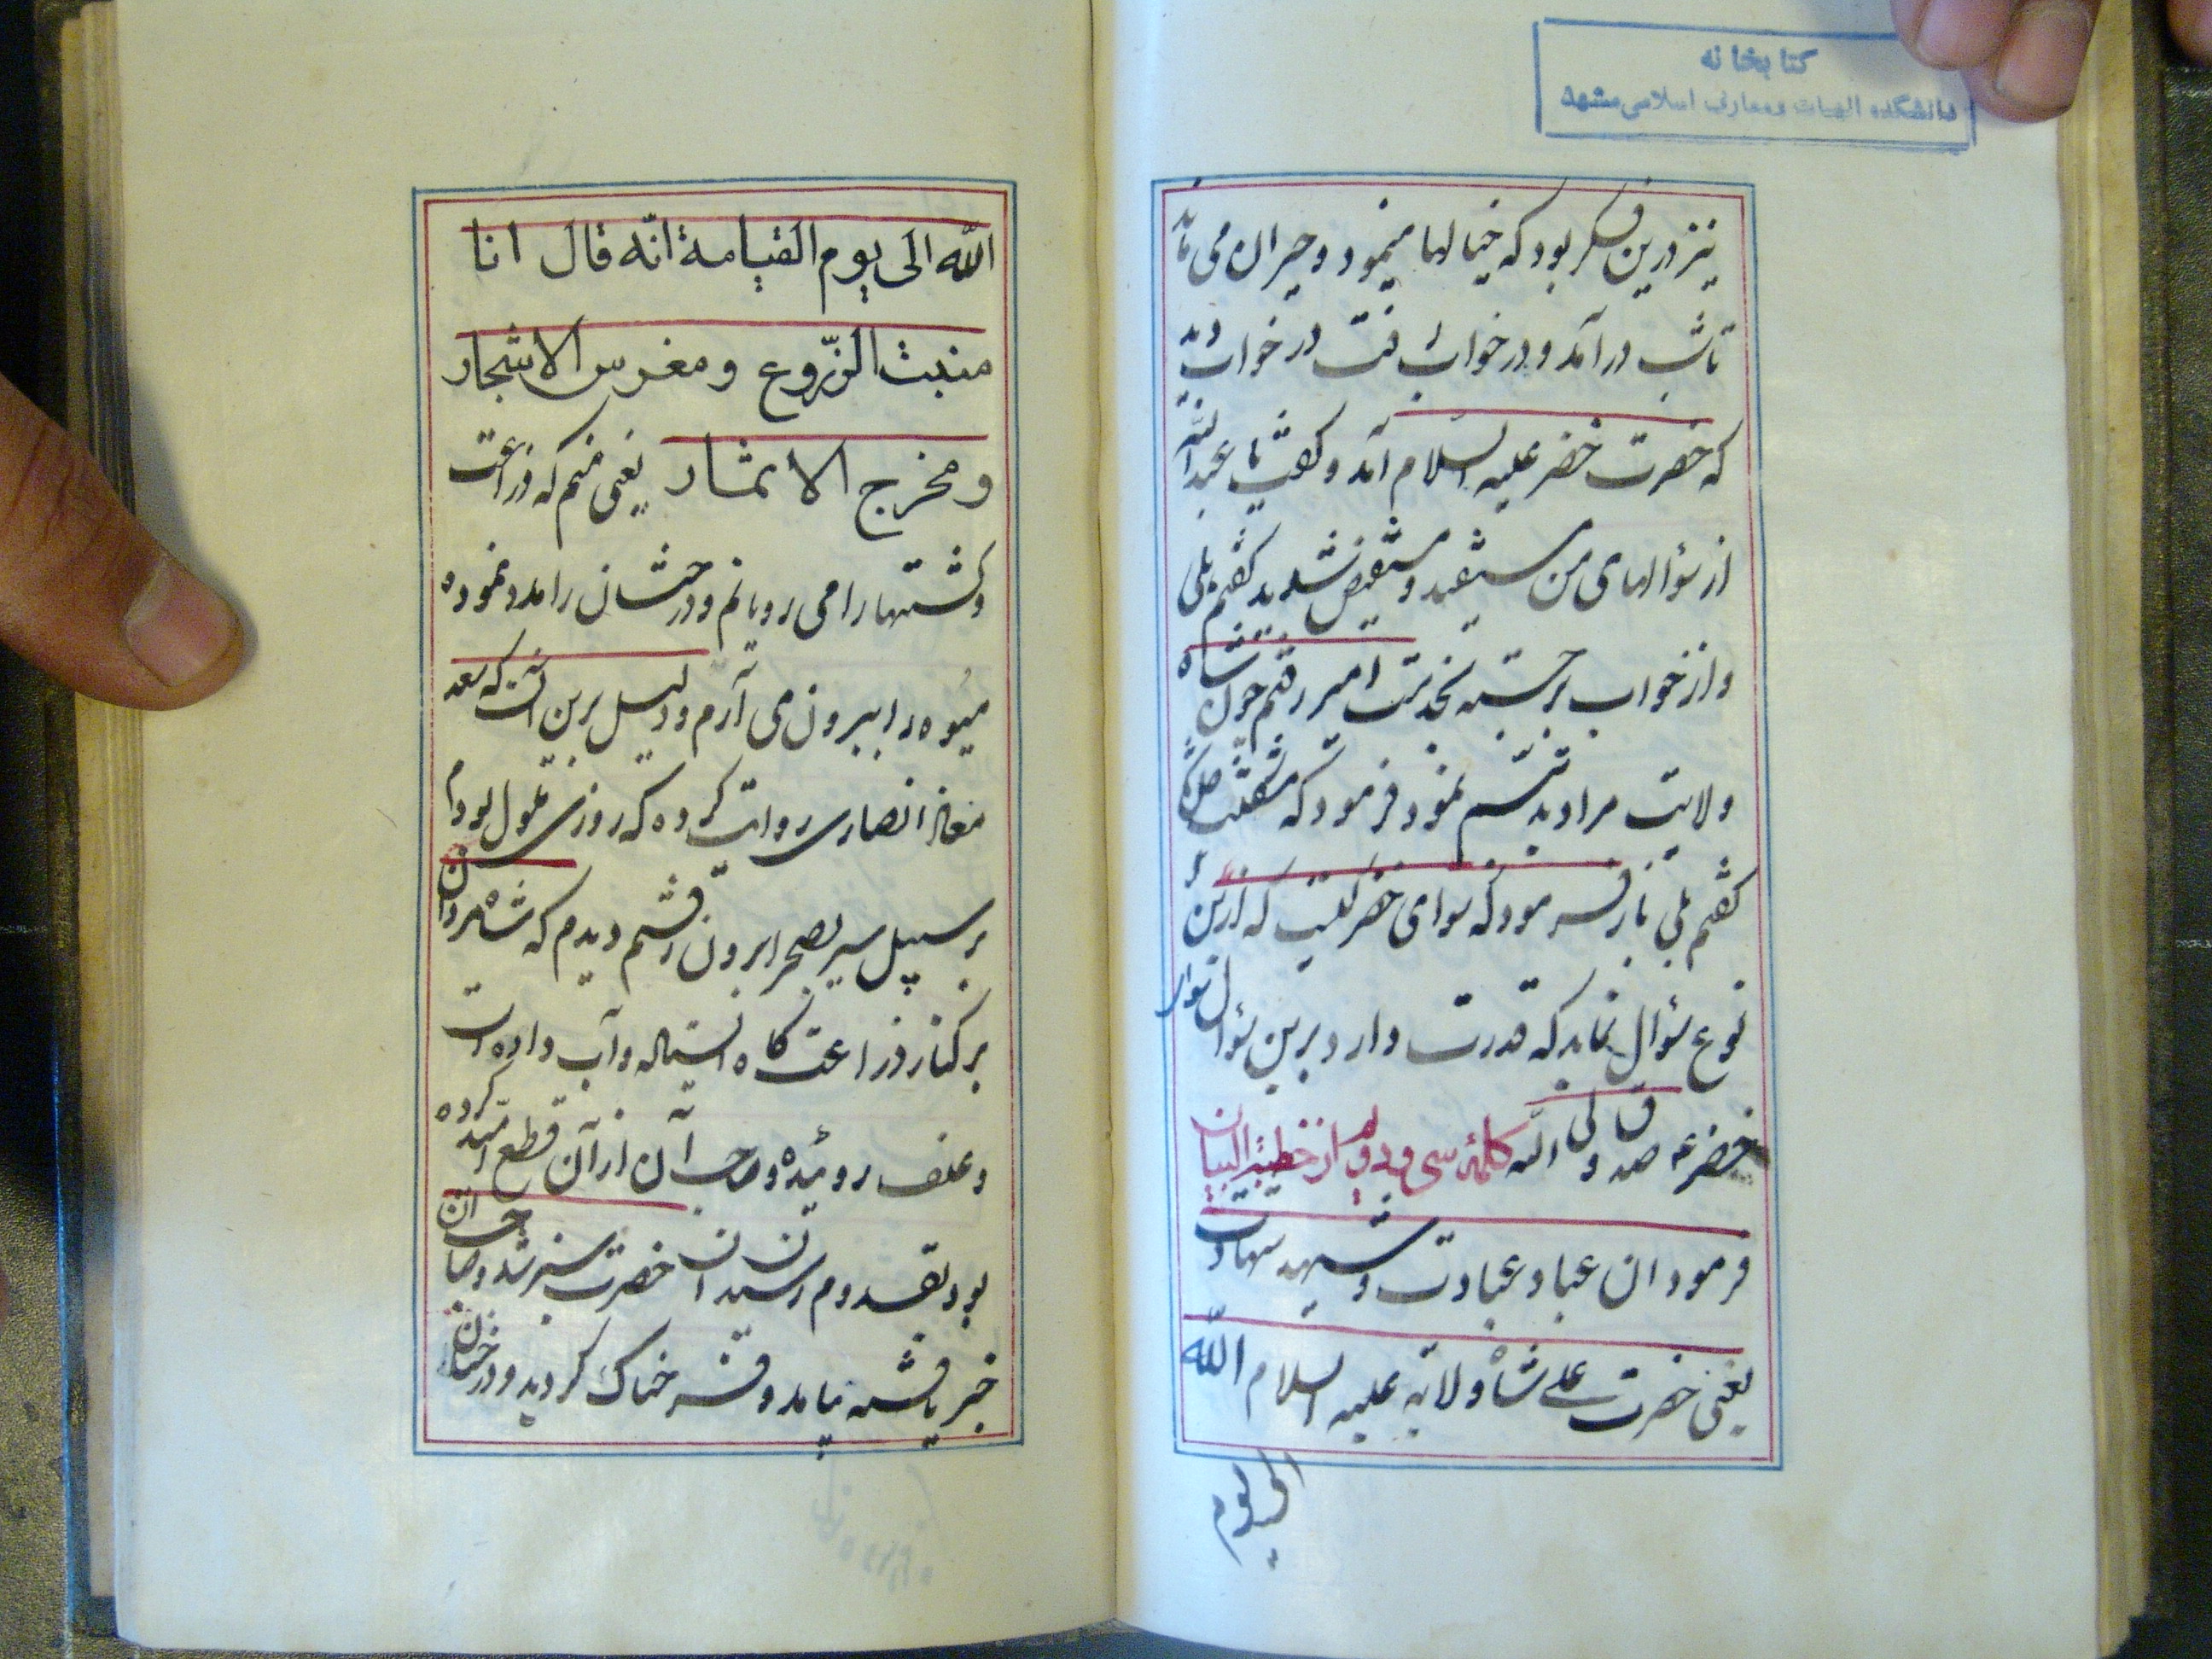 کتابخانه
دانشکده الهیات و معارف اسلامی مشهد
نیز درین فکر بود که خیالها مینمود و حیران می ماند
تا شب درآمد و در خواب رفت در خواب دید
که حضرت خضر علیه السلام آمد و گفت یا عبدالله
از سؤالهای من مستفید و مستفیض شدید گفتم بلی
و از خواب برجسته بخدمت امیر رفتم چون شاه
ولایت مرا دید تبسم نمود فرمود که
گفتم بلی باز فرمود که سوای خضر کیست که ازین
نوع سؤال نماید که قدرت دارد برین سؤال سوای
خضر ع صد ق ولی الله کلمهٔ سی و دوم از خطبة البیان
فرمود ان عباد عبادت و شهید شهادت
یعنی حضرت علی شاه ولایة علیه السلام الله
الی یوم
الله الی یوم القیامة انّه قال انا
منبت الزّروع ومغرس الاشجار
ومخرج الاثمار یعنی منم که زراعت
و کشتها را می رویانم و درختان را مدد نموده
میوه را بیرون می آرم و دلیل برین آنست که سعد
معاذ انصاری روایت کرده که روزی ملول بودم
بر سبیل سیر بصحرا برون رفتم دیدم که شاه مردان
بر کنار زراعت گاه ایستاده و آب داده است
و علف روئیده و صاحب آن از آن قطع امید کرده
بود بقدوم رسیدن آن حضرت سبز شد و صاحب آن
خبر یافته بیامد و فرحناک گردید و درختان